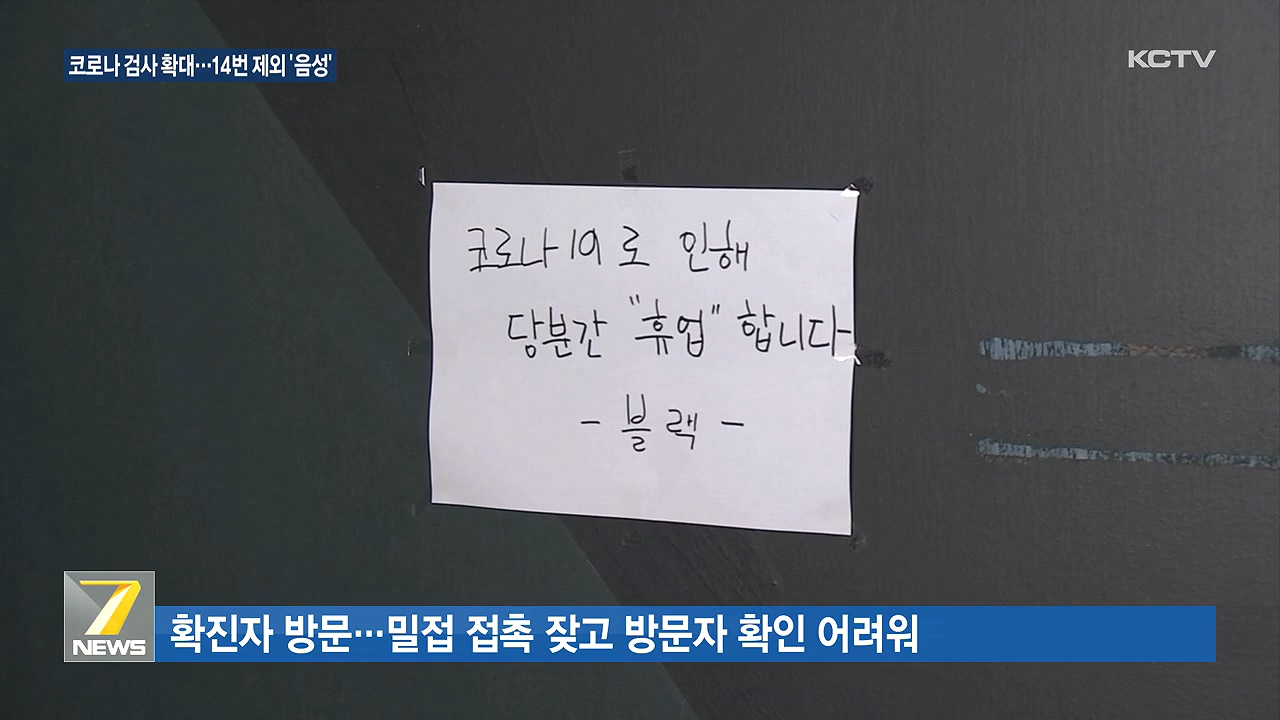 코로나 검사 확대…14번 제외 '음성'
KCTV
코로나19로 인해
당분간 "휴업" 합니다
- 블랙 -
7
NEWS
확진자 방문…밀접 접촉 잦고 방문자 확인 어려워